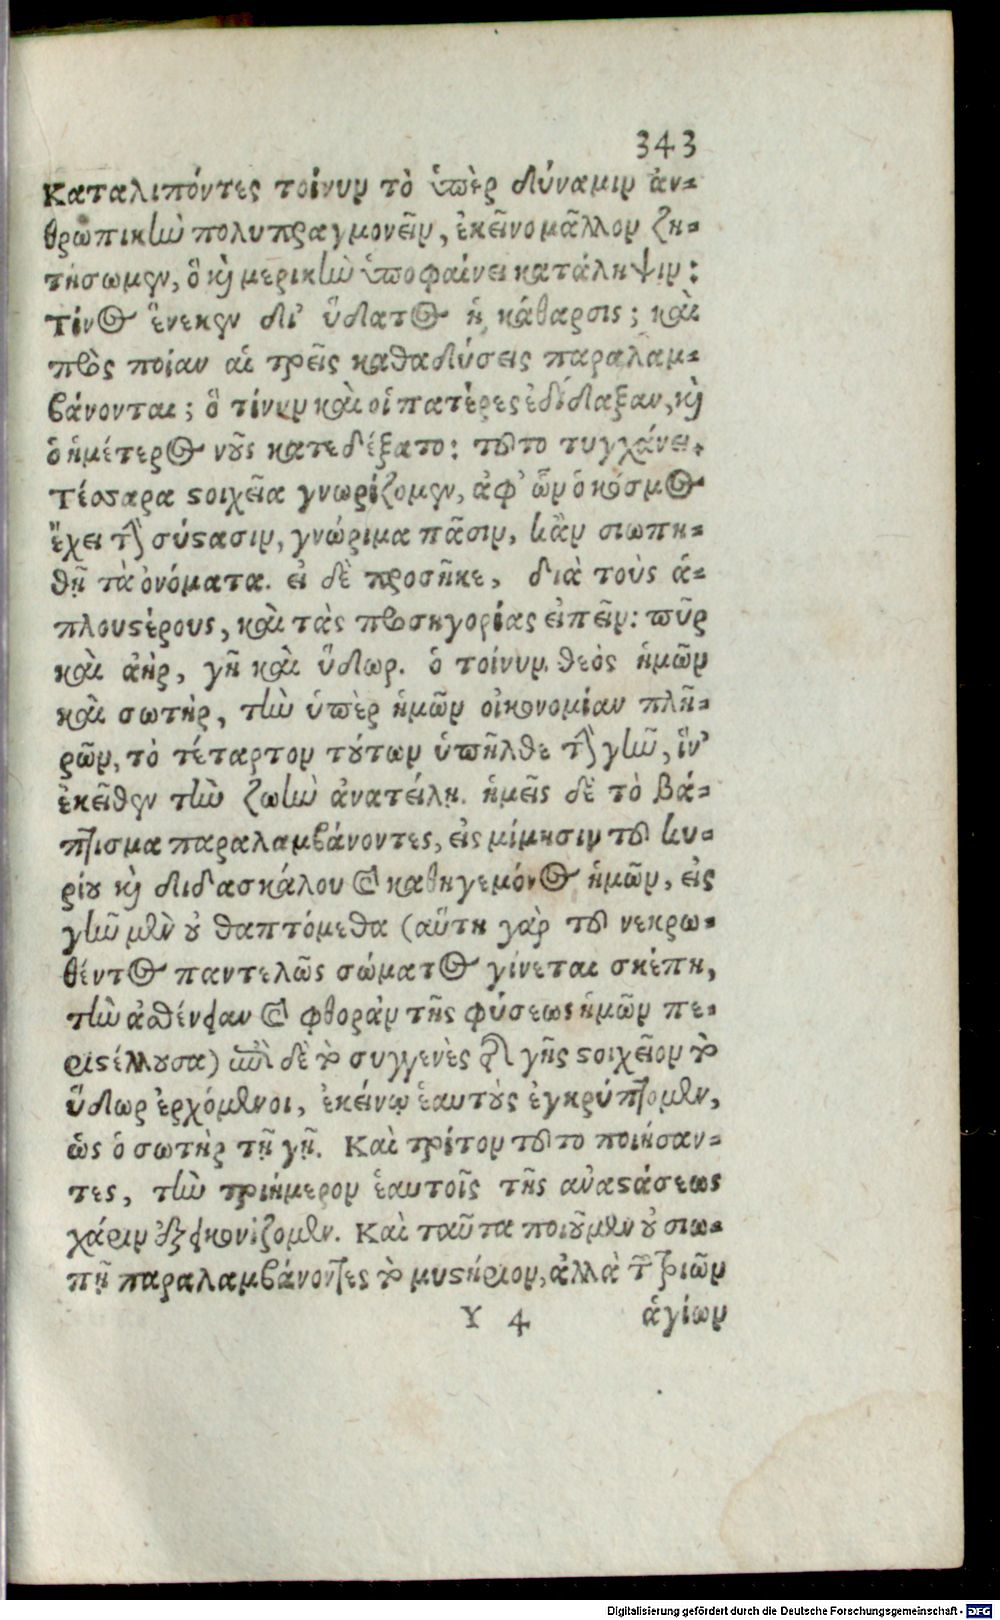 343
Καταλιπόντες τοίνυν τὸ ὑπὲρ δύναμιν ἀν-
θρωπικὴν πολυπραγμονεῖν, ἐκεῖνο μᾶλλον ζη-
τήσωμεν, ὃ καὶ μερικὴν ὑποφαίνει κατάληψιν:
Τίνος ἕνεκεν δι' ὕδατος ἡ κάθαρσις; καὶ
πρὸς ποίαν αἱ τρεῖς καθαδύσεις παραλαμ-
βάνονται; ὃ τίνυν καὶ οἱ πατέρες ἐδίδαξαν, καὶ
ὁ ἡμέτερος νοῦς κατεδέξατο: τοῦτο τυγχάνει.
Τέσσαρα στοιχεῖα γνωρίζομεν, ἀφ' ὧν ὁ κόσμος
ἔχει τὴν σύστασιν, γνώριμα πᾶσιν, κἂν σιωπη-
θῇ τὰ ὀνόματα. εἰ δὲ προσῆκε, διὰ τοὺς ἁ-
πλουστέρους, καὶ τὰς προσηγορίας εἰπεῖν: πῦρ
καὶ ἀὴρ, γῆ καὶ ὕδωρ. ὁ τοίνυν θεὸς ἡμῶν
καὶ σωτὴρ, τὴν ὑπὲρ ἡμῶν οἰκονομίαν πλη-
ρῶν, τὸ τέταρτον τούτων ὑπῆλθε τὴν γῆν, ἵν'
ἐκεῖθεν τὴν ζωὴν ἀνατείλῃ. ἡμεῖς δὲ τὸ βά-
πτισμα παραλαμβάνοντες, εἰς μίμησιν τοῦ κυ-
ρίου καὶ διδασκάλου καὶ καθηγεμόνος ἡμῶν, εἰς
γῆν μὲν οὐ θαπτόμεθα (αὕτη γὰρ τοῦ νεκρω-
θέντος παντελῶς σώματος γίνεται σκέπη,
τὴν ἀσθένειαν καὶ φθορὰν τῆς φύσεως ἡμῶν πε-
ριστέλλουσα) ἐπὶ δὲ τὸ συγγενὲς τῆς γῆς στοιχεῖον τὸ
ὕδωρ ἐρχόμενοι, ἐκείνῳ ἑαυτοὺς ἐγκρύπτομεν,
ὡς ὁ σωτὴρ τῇ γῇ. Καὶ τρίτον τοῦτο ποιήσαν-
τες, τὴν τριήμερον ἑαυτοῖς τῆς ἀναστάσεως
χάριν ἐξεικονίζομεν. Καὶ ταῦτα ποιοῦμεν οὐ σιω-
πῇ παραλαμβάνοντες τὸ μυστήριον, ἀλλὰ τῶν τριῶν
Υ 4 ἁγίων
Digitalisierung gefördert durch die Deutsche Forschungsgemeinschaft - DFG